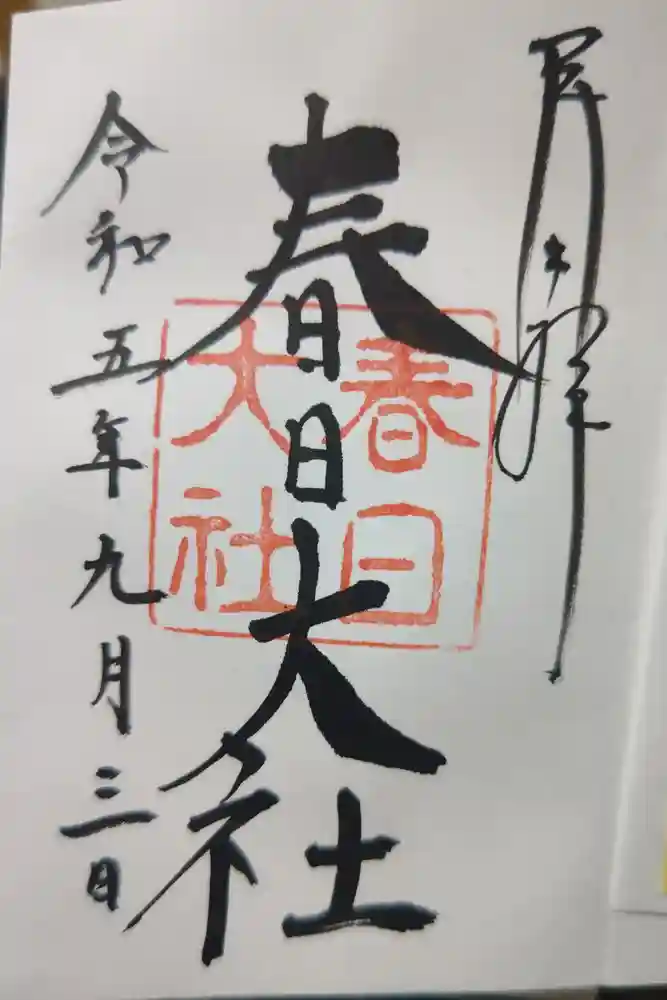 奉拝
春日大社
春日
大社
令和五年九月三日